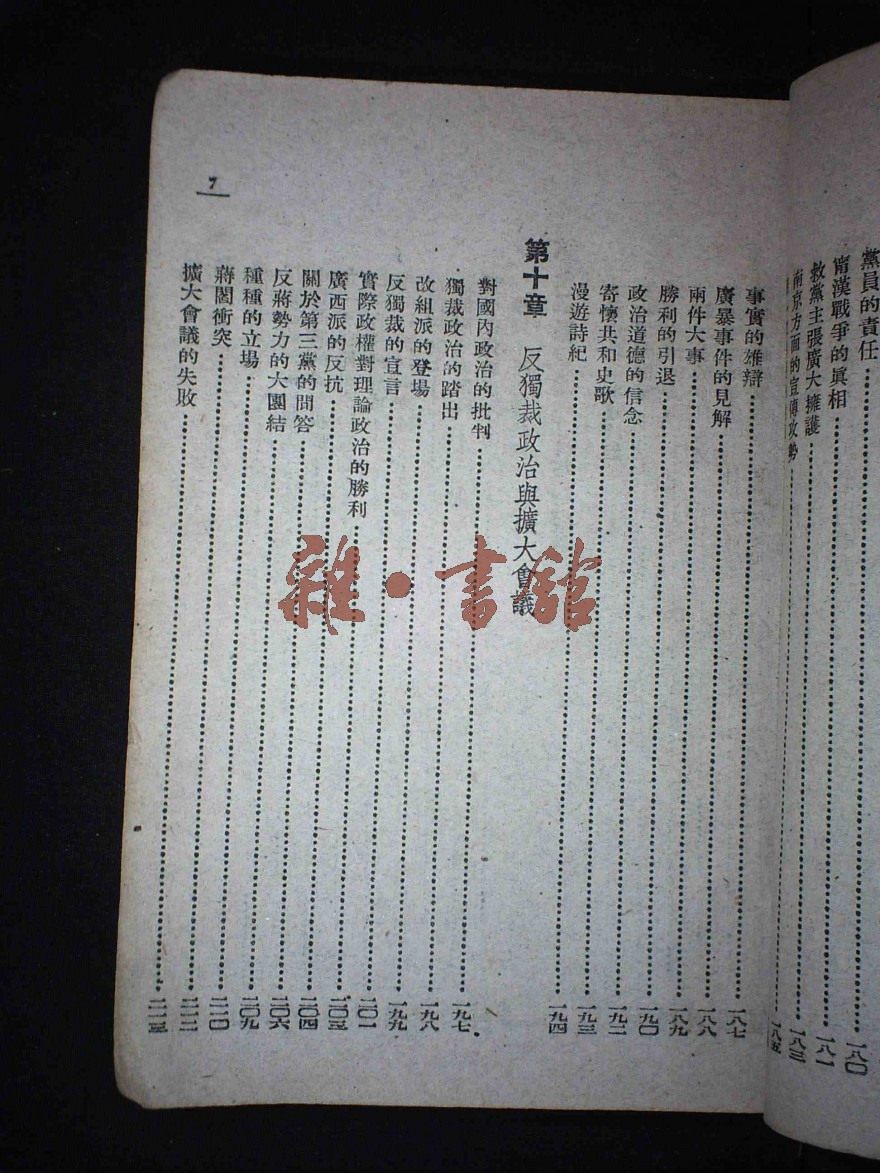 黨員的責任……一八〇
甯漢戰爭的眞相……一八一
救黨主張廣大擁護……一八三
南京方面的宣傳攻勢……一八五
事實的雄辯……一八七
廣暴事件的見解……一八八
兩件大事……一八九
勝利的引退……一九〇
政治道德的信念……一九二
寄懷共和史歌……一九三
漫遊詩紀……一九四
第十章 反獨裁政治與擴大會議
對國內政治的批判……一九七
獨裁政治的踏出……一九八
改組派的登場……一九九
反獨裁的宣言……二〇一
實際政權對理論政治的勝利……二〇三
廣西派的反抗……二〇四
關於第三黨的問答……二〇六
反蔣勢力的大團結……二〇九
種種的立場……二一〇
蔣閻衝突……二一二
擴大會議的失敗……二一三
7
雜·書館